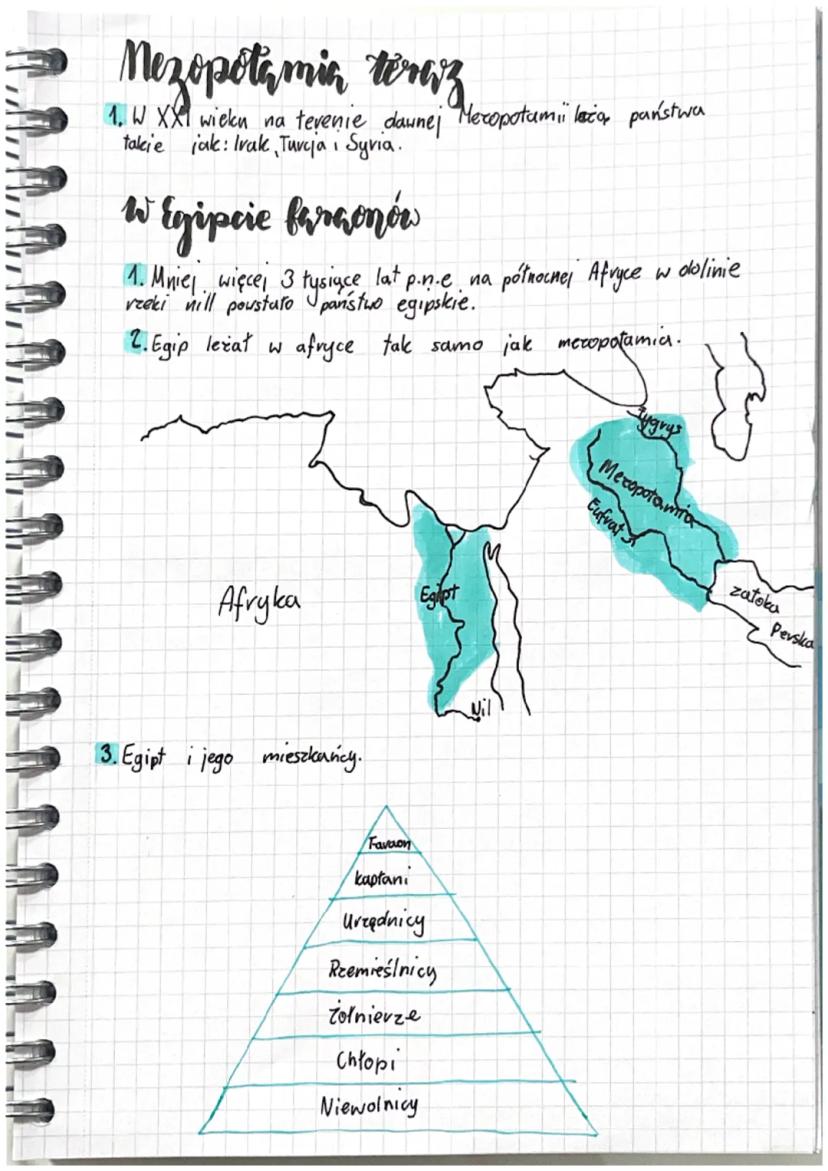 Mezopotamia teraz
1. W XXI wieku na terenie dawnej Mezopotamii leżą państwa
takie jak: Irak, Turcja i Syria.
W Egipcie faraonów
1. Mniej więcej 3 tysiące lat p.n.e na północnej Afryce w dolinie
rzeki nill powstało państwo egipskie.
2. Egip leżał w afryce tak samo jak mezopotamia.
Tygrys
Mezopotamia
Eufrat
Egipt
Afryka
zatoka
Perska
Nil
3. Egipt i jego mieszkańcy.
Faraon
kapłani
Urzędnicy
Rzemieślnicy
żołnierze
Chłopi
Niewolnicy